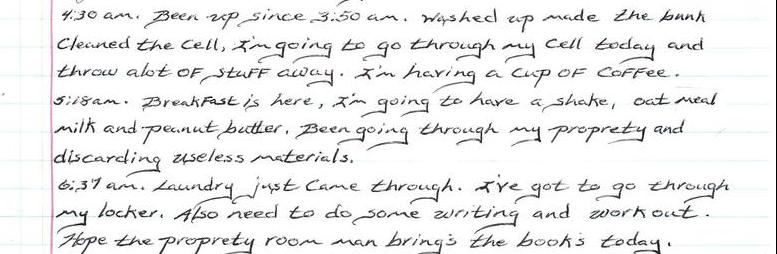 4:30 am. Been up since 3:50 am. Washed up made the bunk
Cleaned the cell, I'm going to go through my cell today and
throw alot of stuff away. I'm having a cup of coffee.
5:18am. Breakfast is here, I'm going to have a shake, oat meal
milk and peanut butter. Been going through my proprety and
discarding useless materials.
6:37 am. Laundry just came through. I've got to go through
my locker. Also need to do some writing and work out.
Hope the proprety room man bring's the book's today.